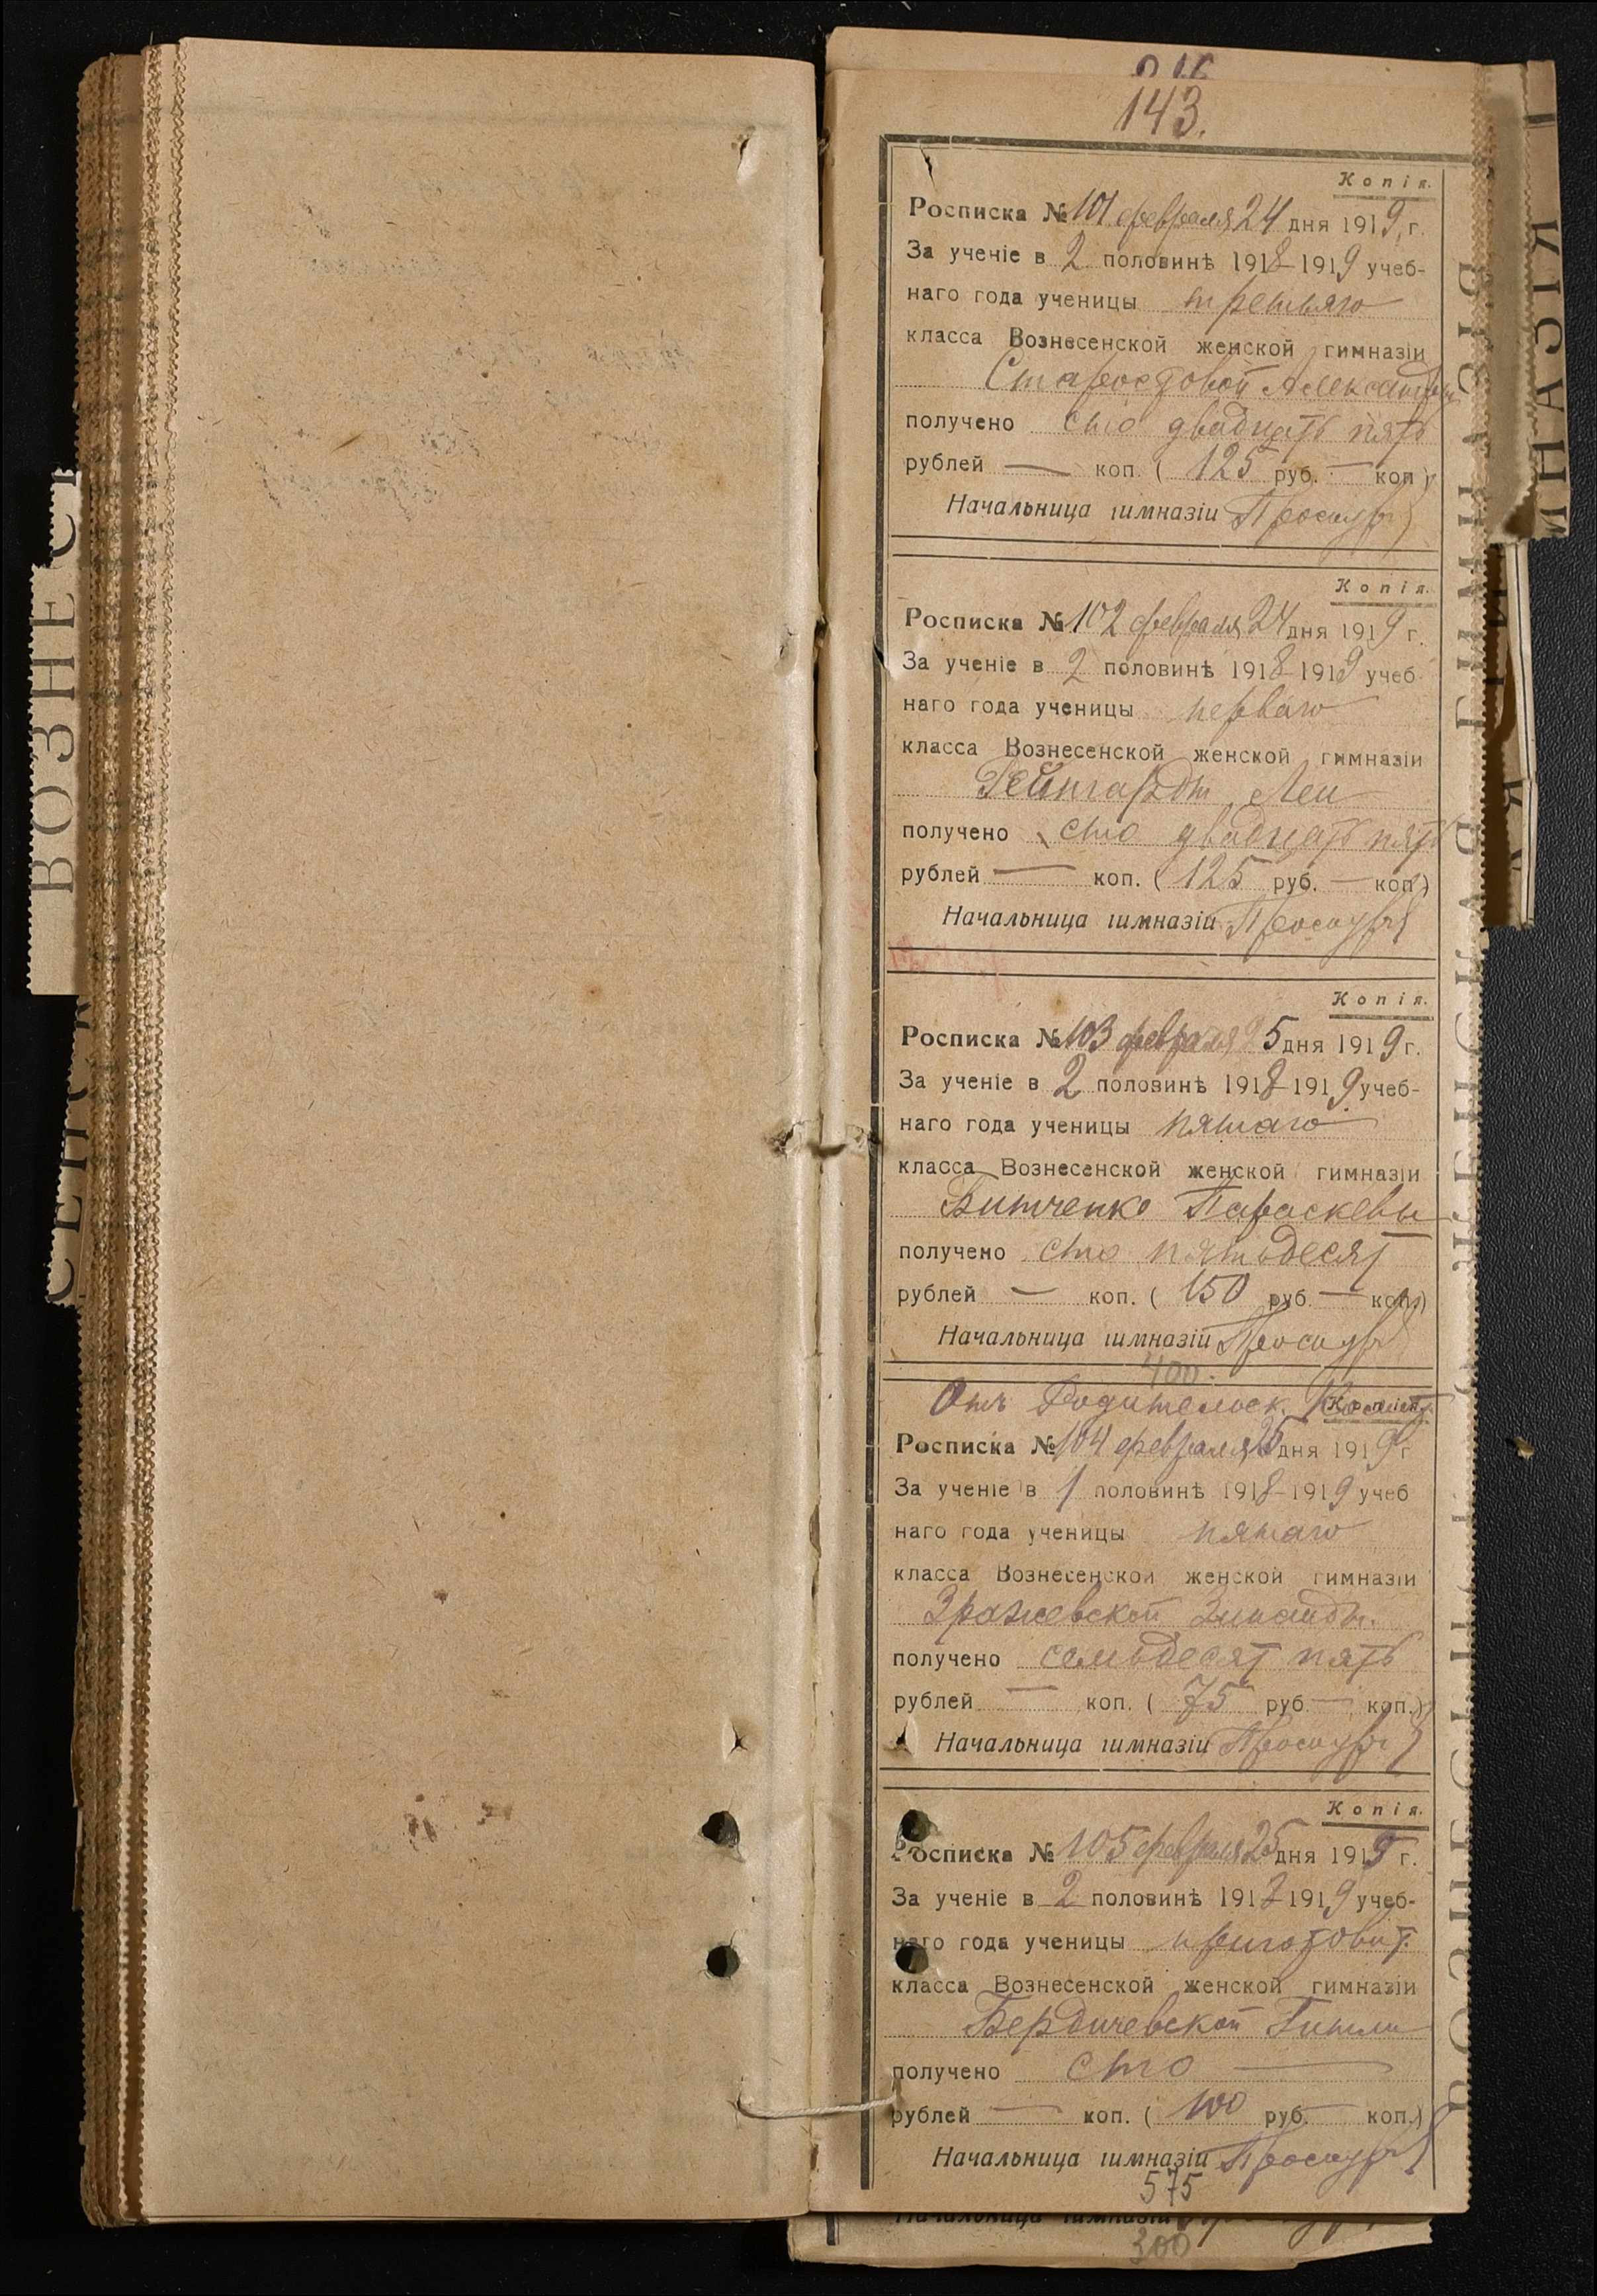 143.
Копія.
Росписка № 101 февраля 24 дня 1919 г.
За ученіе в 2 половинѣ 1918-1919 учеб-
наго года ученицы третьяго
класса Вознесенской женской гимназіи
Александры
получено сто двадцать пять
рублей — коп. ( 125 руб. — коп.)
Начальница гимназіи
Копія.
Росписка № 102 февраля 24 дня 1919 г.
За ученіе в 2 половинѣ 1918-1919 учеб-
наго года ученицы перваго
класса Вознесенской женской гимназіи
Рейнгардт Леи
получено сто двадцать пять
рублей — коп. ( 125 руб. — коп.)
Начальница гимназіи
Копія.
Росписка № 103 февраля 25 дня 1919 г.
За ученіе в 2 половинѣ 1918-1919 учеб-
наго года ученицы пятаго
класса Вознесенской женской гимназіи
Битченко Параскевы
получено сто пятьдесят
рублей — коп. ( 150 руб. — коп.)
Начальница гимназіи
400.
Отъ Родительск. Копія.
Росписка № 104 февраля 25 дня 1919 г
За ученіе в 1 половинѣ 1918-1919 учеб
наго года ученицы пятаго
класса Вознесенской женской гимназіи
Зражевской Зинаиды.
получено семьдесят пять
рублей — коп. ( 75 руб. — коп.)
Начальница гимназіи
Копія.
Росписка № 105 февраля 25 дня 1919 г.
За ученіе в 2 половинѣ 1918-1919 учеб-
наго года ученицы приготовит.
класса Вознесенской женской гимназіи
Бердичевской Гитли
получено сто —
рублей — коп. ( 100 руб. — коп.)
Начальница гимназіи
575
Начальница гимназіи
300
ВОЗНЕС